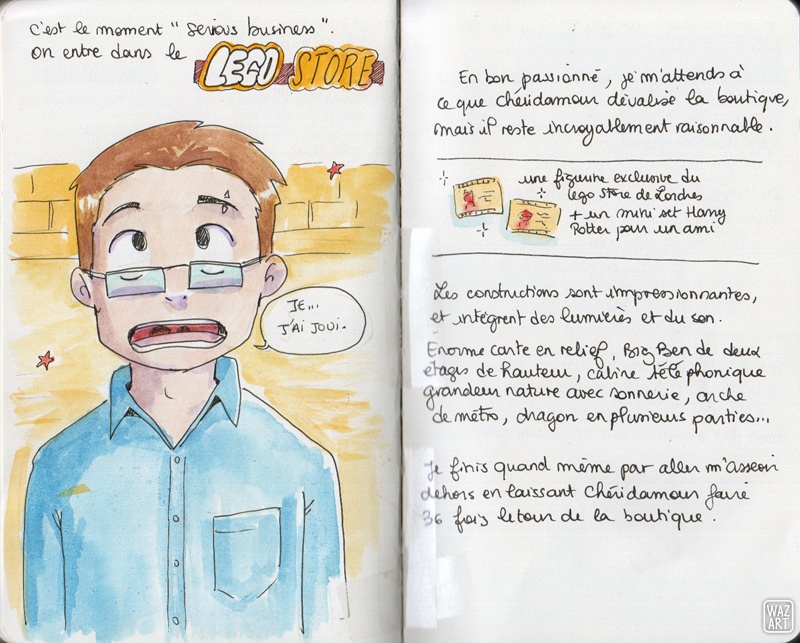 c'est le moment "serious business".
on entre dans le LEGO STORE
JE...
J'AI JOUI.
En bon passionné, je m'attends à
ce que Chéridamour dévalise la boutique,
mais il reste incroyablement raisonnable.
une figurine exclusive du
Lego Store de Londres
+ un mini set Harry
Potter pour un ami
Les constructions sont impressionnantes,
et intègrent des lumières et du son.
Énorme carte en relief, Big Ben de deux
étages de hauteur, cabine téléphonique
grandeur nature avec sonnerie, arche
de métro, dragon en plusieurs parties...
Je finis quand même par aller m'asseoir
dehors en laissant Chéridamour faire
36 fois le tour de la boutique.
WAZ
ART